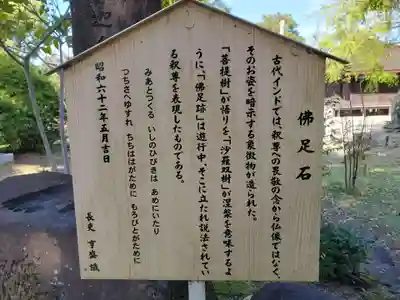 佛足石
古代インドでは釈尊への畏敬の念から仏像ではなく、
そのお姿を暗示する象徴物が造られた。
「菩提樹」が悟りを「沙羅双樹」が涅槃を意味するよ
うに、「佛足跡」は遊行中、そこに立たれ説法されてい
る釈尊を表現したものである。
みあとつくる いしのひびきは あめにいたり
つちさへゆすれ ちちははがために もろびとがために
昭和六十二年五月吉日
長吏